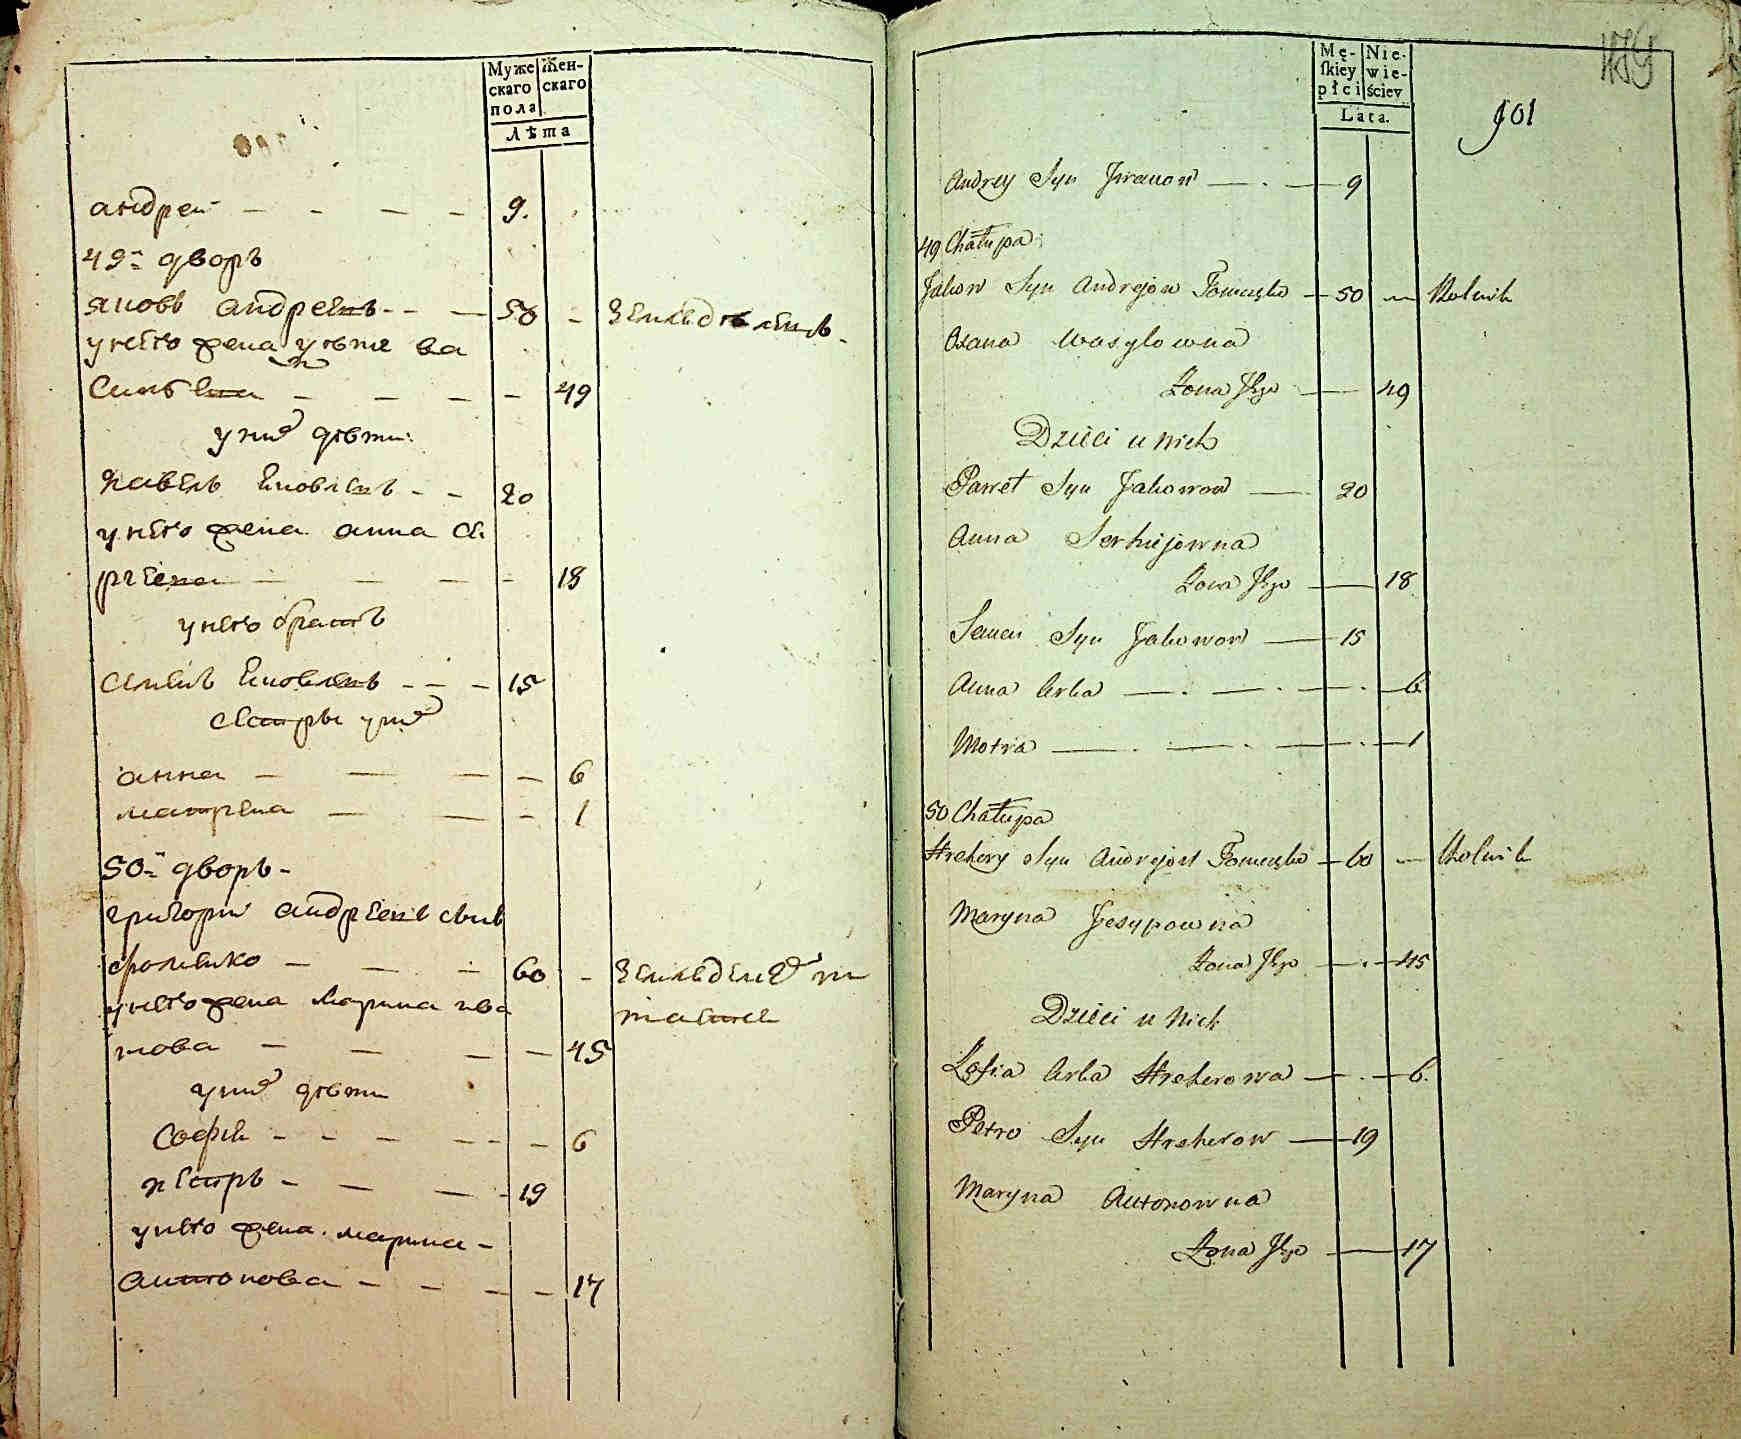 Муже
скаго
пола
Жен-
скаго
Лѣта
андрей - - - - 9.
49й дворъ
яковъ андреевъ - - 50 -
у него жена
49
у них дѣти
павелъ яковлевъ - - 20
у него жена анна се
ргеева - - - - 18
у него братъ
семенъ яковлевъ - - - 15
сестры у них
анна - - - - 6
матрена - - - 1
50й дворъ -
григори андреевъ сынъ
фоменко - - - 60 -
у него жена марина
нова - - - - 45
у них дѣти
софия - - - - - - 6
петръ - - - - 19
у него жена марина -
антонова - - - - 17
Mę-
ſkiey
płci
Nie-
wie-
ściey
Lata.
901
Andrey Syn Jwanow — . — 9
49 Chałupa
Jakow Syn Andrejow Fomenko — 50 — Rolnik
Oxana Wasylowna
Żona Jego — 49
Dzieci u Nich
Paweł Syn Jakowow — 20
Anna Serhiejowna
Żona Jego — 18
Semen Syn Jakowow — 15
Anna Corka — . — . — . — 6
Motra — . — . — . — 1
50 Chałupa
Hrehory Syn Andrejow Fomenko — 60 — Rolnik
Maryna Jesypowna
Żona Jego — . — 45
Dzieci u Nich
Zofia Corka Hrehorowa — . — 6.
Petro Syn Hrehorow — 19
Maryna Antonowna
Żona Jego — 17